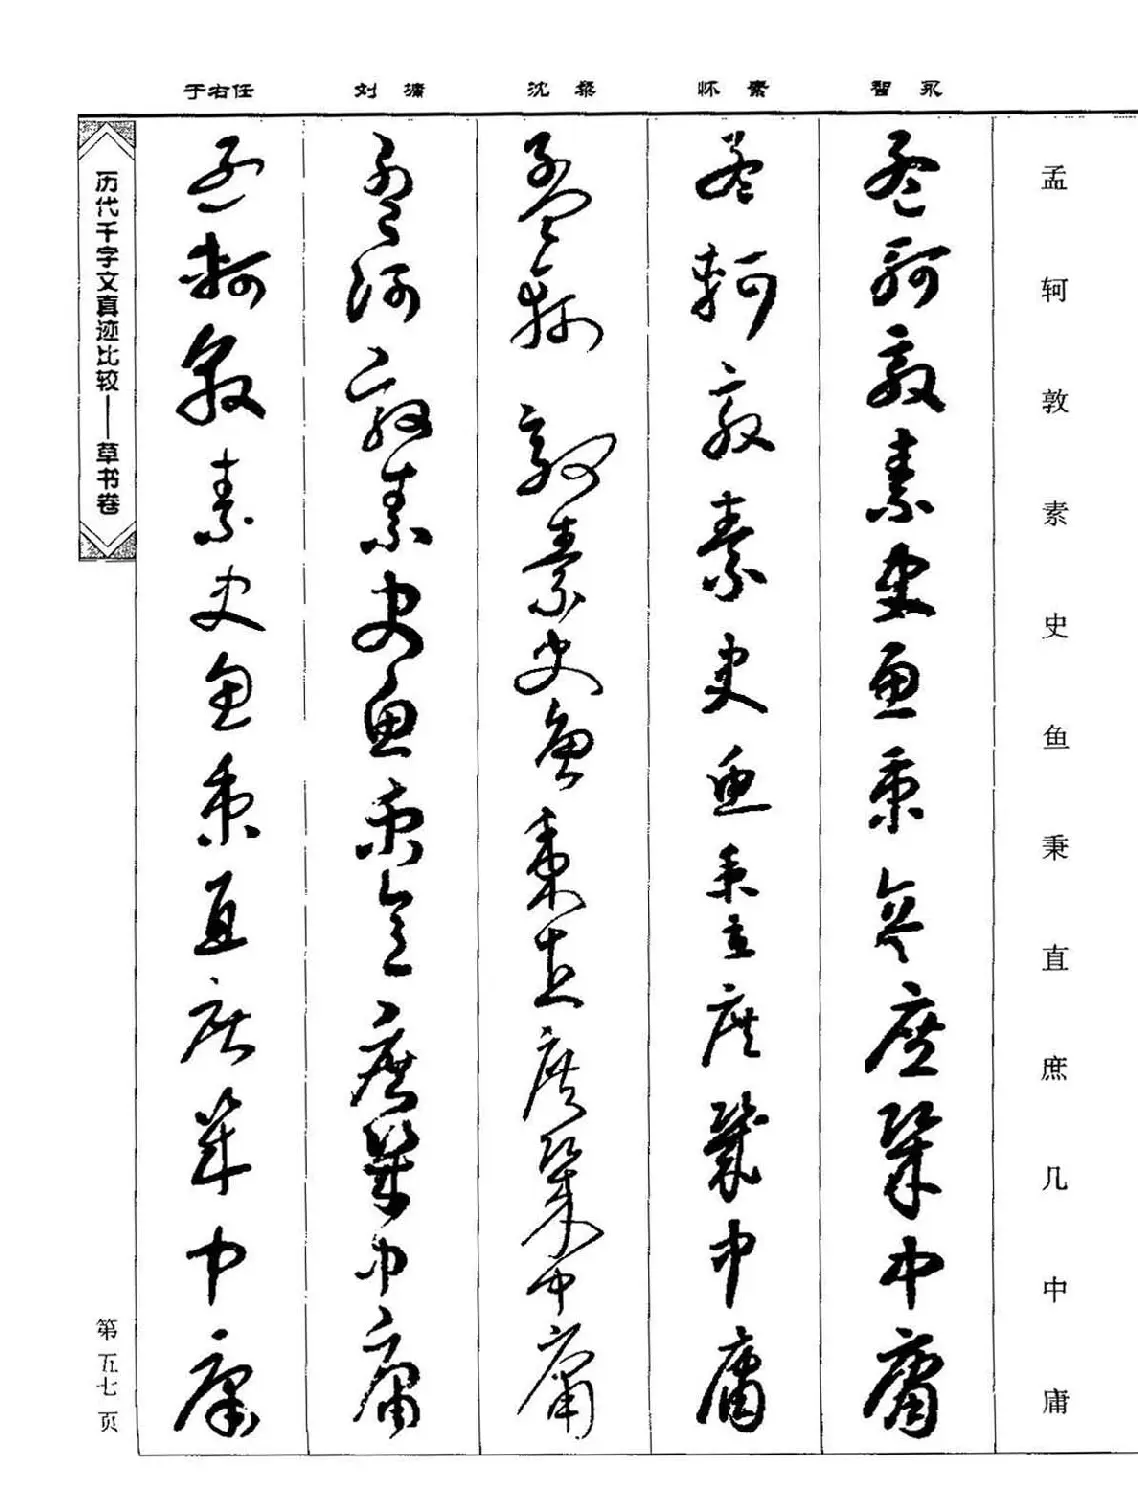 智永
怀素
沈粲
刘墉
于右任
孟轲敦素史鱼秉直庶几中庸
孟轲敦素史鱼秉直庶几中庸
孟轲敦素史鱼秉直庶几中庸
孟轲敦素史鱼秉直庶几中庸
孟轲敦素史鱼秉直庶几中庸
孟轲敦素史鱼秉直庶几中庸
历代千字文真迹比较——草书卷
第五七页